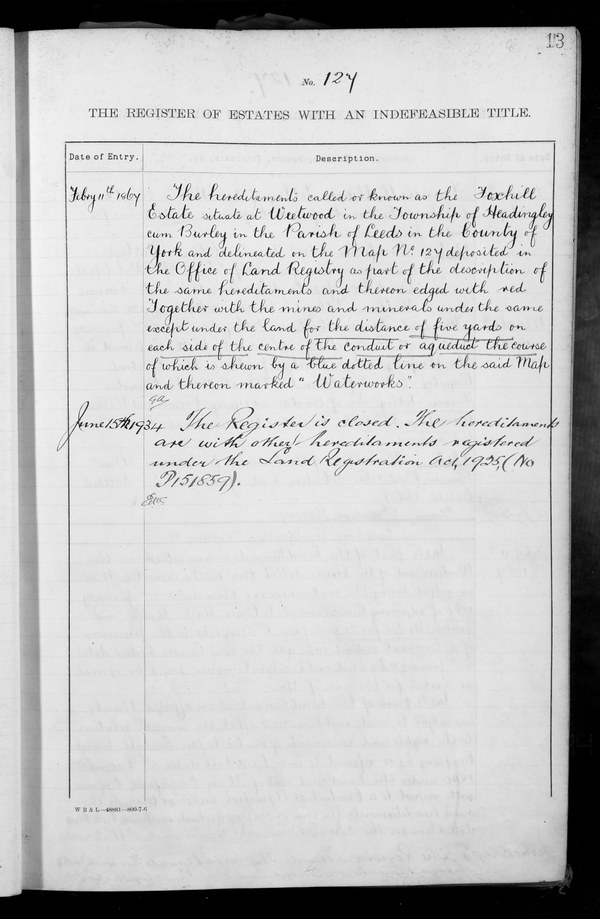 13
No. 127
THE REGISTER OF ESTATES WITH AN INDEFEASIBLE TITLE.
Date of Entry.
Description.
Febry 11th 1867
The hereditaments called or known as the Foxhill
Estate situate at Weetwood in the Township of Headingley
cum Burley in the Parish of Leeds in the County of
York and delineated on the Map No. 127 deposited in
the Office of Land Registry as part of the description of
the same hereditaments and thereon edged with red
Together with the mines and minerals under the same
except under the land for the distance of five yards on
each side of the centre of the conduit or aqueduct the course
of which is shewn by a blue dotted line on the said Map
and thereon marked "Waterworks".
June 15th 1934
The Register is closed. The hereditaments
are with other hereditaments registered
under the Land Registration Act, 1925, (No
P151859).
W B & L—48893—800-7-6